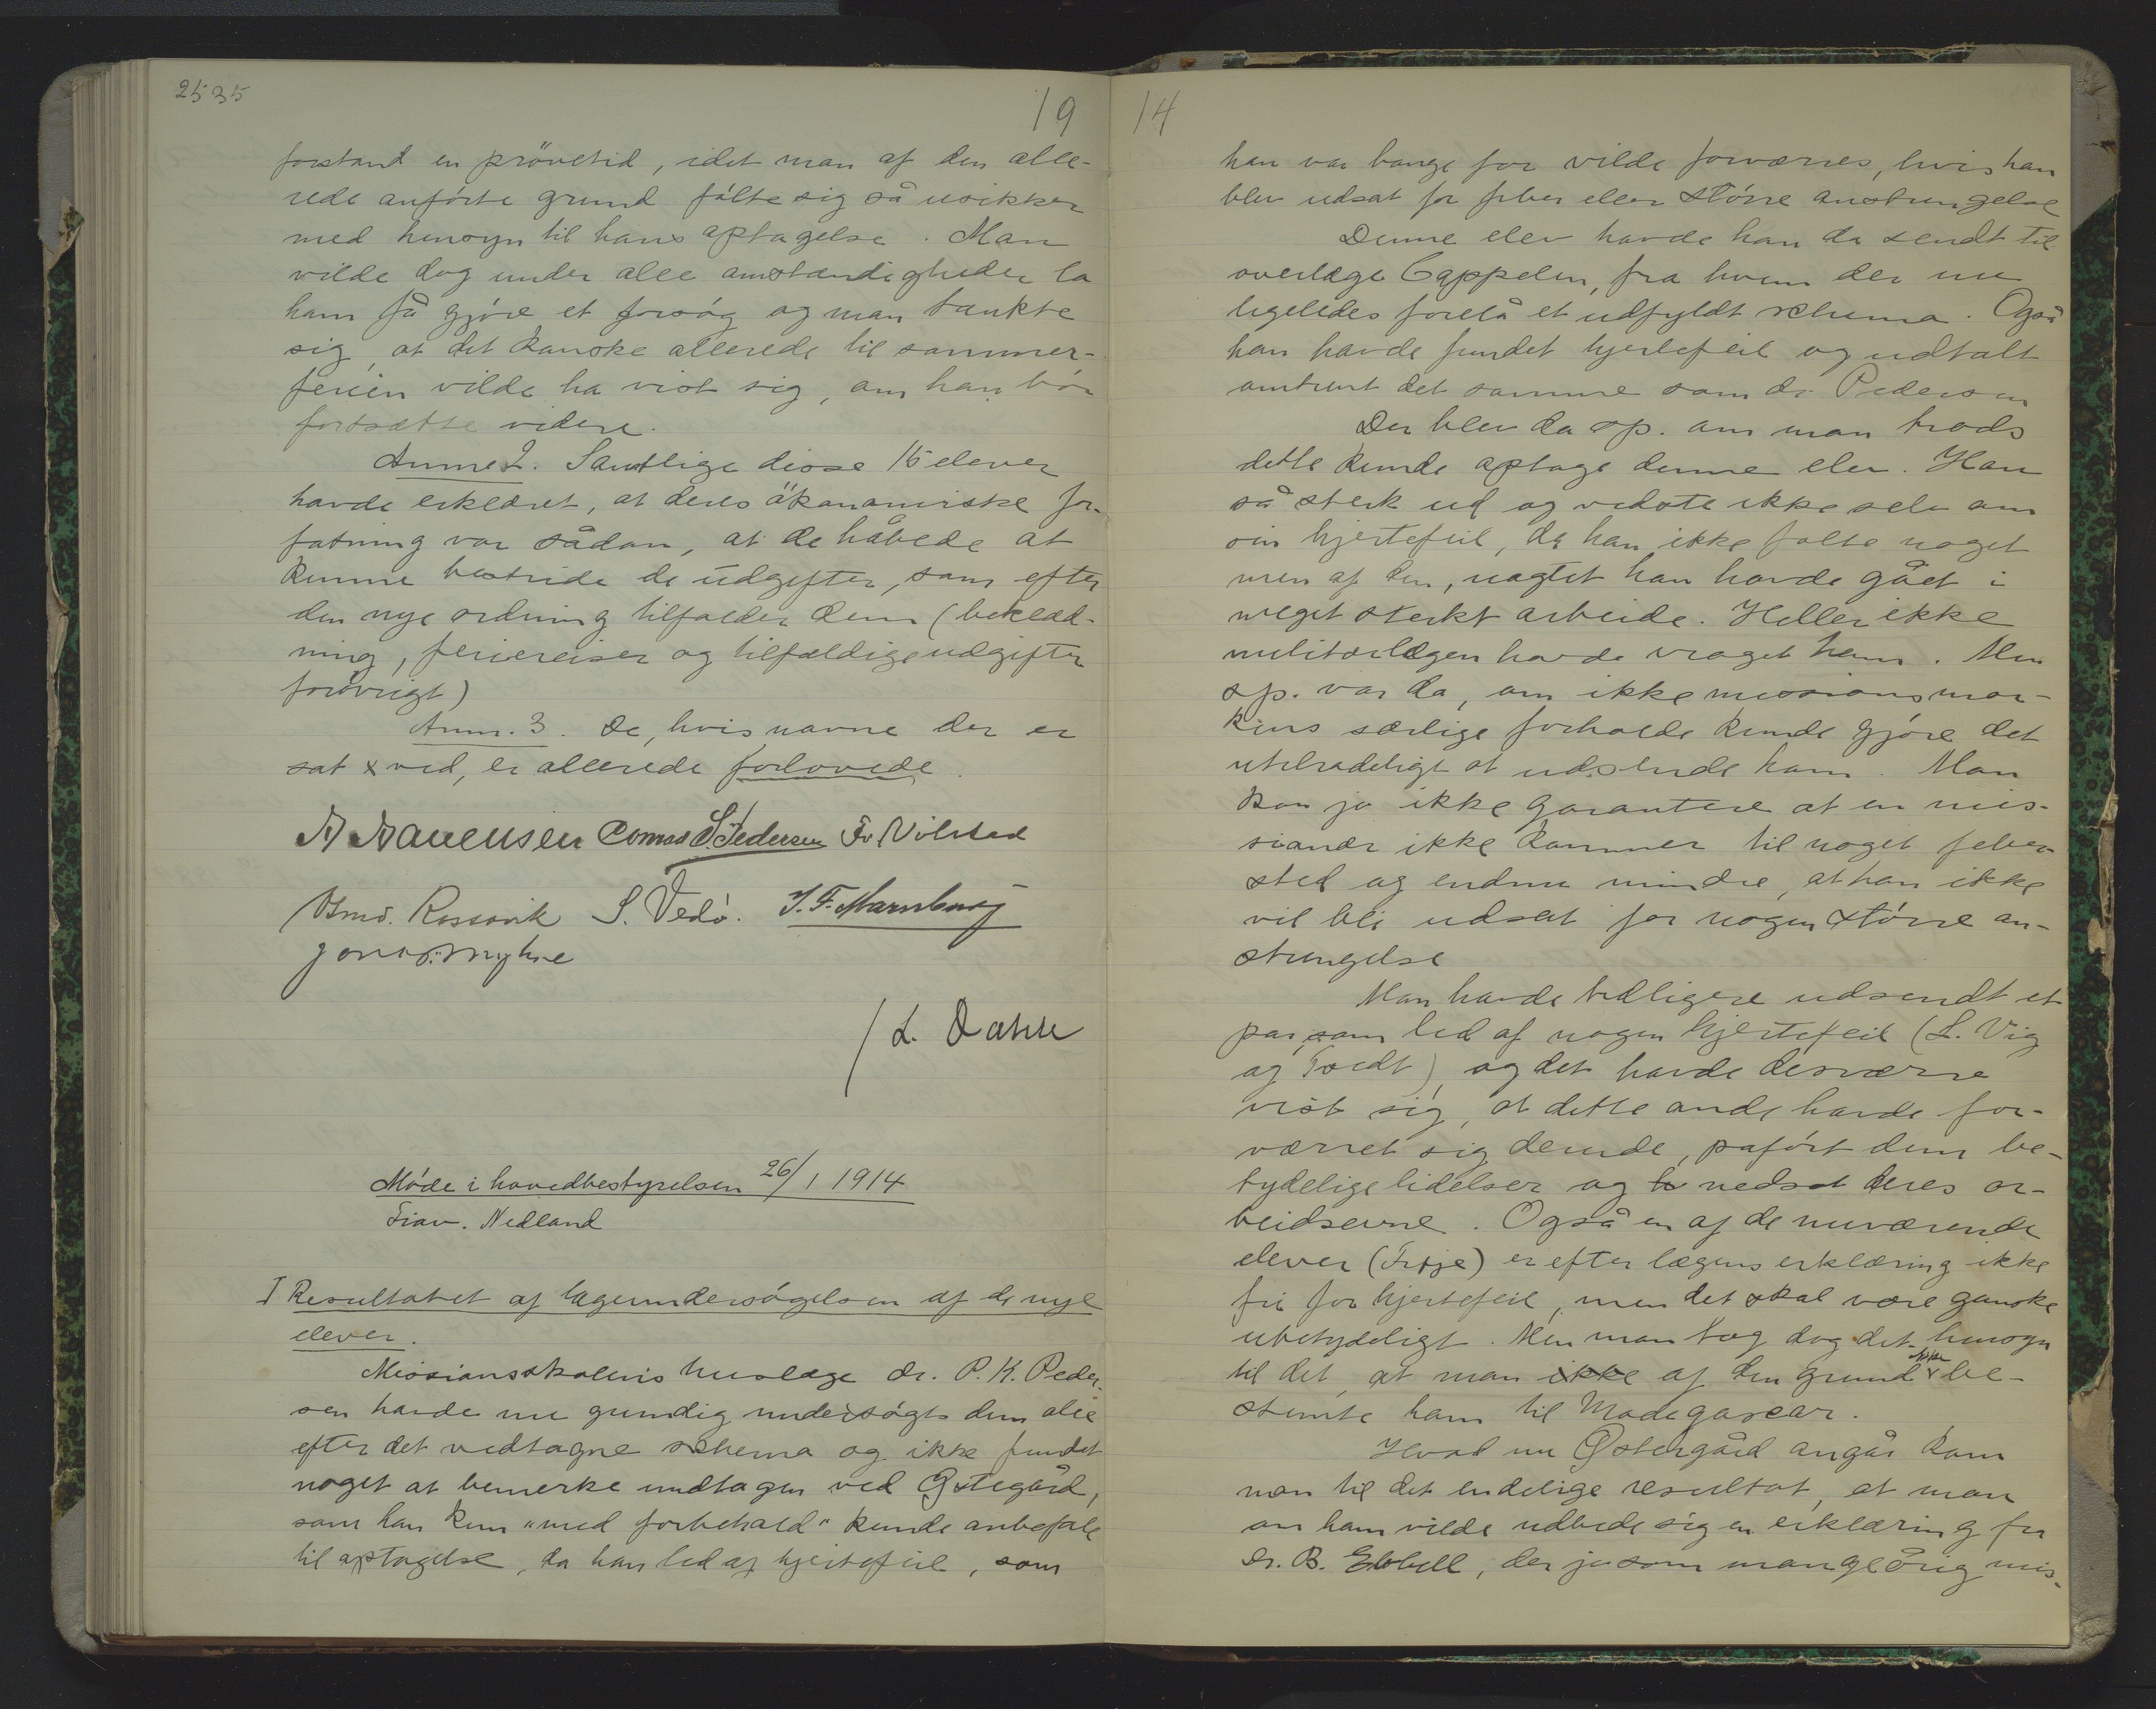 2535
19
forstand en prövetid, idet man af den alle-
rede anförte grund fölte sig så usikker
med hensyn til hans optagelse. Man
vilde dog under alle omstændigheder la
ham få gjöre et forsög og man tænkte
sig, at det kanske allerede til sommer-
ferien vilde ha vist sig, om han bör
fortsætte videre.
Anm. 2. Samtlige disse 15 elever
havde erklæret, at deres ökonomiske for-
fatning var sådan, at de håbede at
kunne bestride de udgifter, som efter
den nye ordning tilfalder dem (beklæd-
ning, feriereiser og tilfældige udgifter
forövrigt)
Anm. 3. De, hvis navne der er
sat x ved, er allerede forlovede.
A Aanensen Conrad S. Pedersen Fr Nilstad
Rossavik S. Vedö. J. F. Marnburg
Jonas Myhre
/ L. Dahle
Möde i hovedbestyrelsen 26/1 1914
Frav. Nedland
I Resultatet af lægeundersögelsen af de nye
elever.
Missionsskolens huslæge dr. P. K. Peder-
sen havde nu grundig undersögt dem alle
efter det vedtagne schema og ikke fundet
noget at bemerke undtagen ved Østegård,
som han kun "med forbehold" kunde anbefale
til optagelse, da han led af hjertefeil, som
14
han var bange for vilde forværres, hvis han
blev udsat for feber eller större anstrengelse
Denne elev havde han da sendt til
overlæge Cappelen, fra hvem der nu
ligeledes forelå et udfyldt schema. Også
han havde fundet hjertefeil og udtalt
omtrent det samme som dr Pedersen
Der blev da sp. om man trods
dette kunde optage denne elev. Han
så sterk ud og vidste ikke selv om
sin hjertefeil, da han ikke fölte noget
men af den, uagtet han havde gået i
meget sterkt arbeide. Heller ikke
militærlægen havde vraget ham. Men
sp. var da, om ikke missionsmar-
kens særlige forholde kunde gjöre det
utilrådeligt at udsende ham. Man
kan jo ikke garantere at en mis-
sionær ikke kommer til noget feber-
sted og endnu mindre, at han ikke
vil bli udsat for nogen större an-
strengelse
Man havde tidligere udsendt et
par, som led af nogen hjertefeil (L. Vig
og Tvedt), og det havde desværre
vist sig, at dette onde havde for-
værret sig derude, påfört dem be-
tydelige lidelser og nedsat deres ar-
beidsevne. Også en af de nuværende
elever (Frøje) er efter lægens erklæring ikke
fri for hjertefeil, men det skal være ganske
ubetydeligt. Men man tog dog det hensyn
til det, at man ikke af den grund ikke be-
stemte ham til Madagascar.
Hvad nu Østergård angår kom
man til det endelige resultat, at man
om ham vilde udbede sig en erklæring fra
Dr. B. Ebbell, der jo som mangeårig mis-